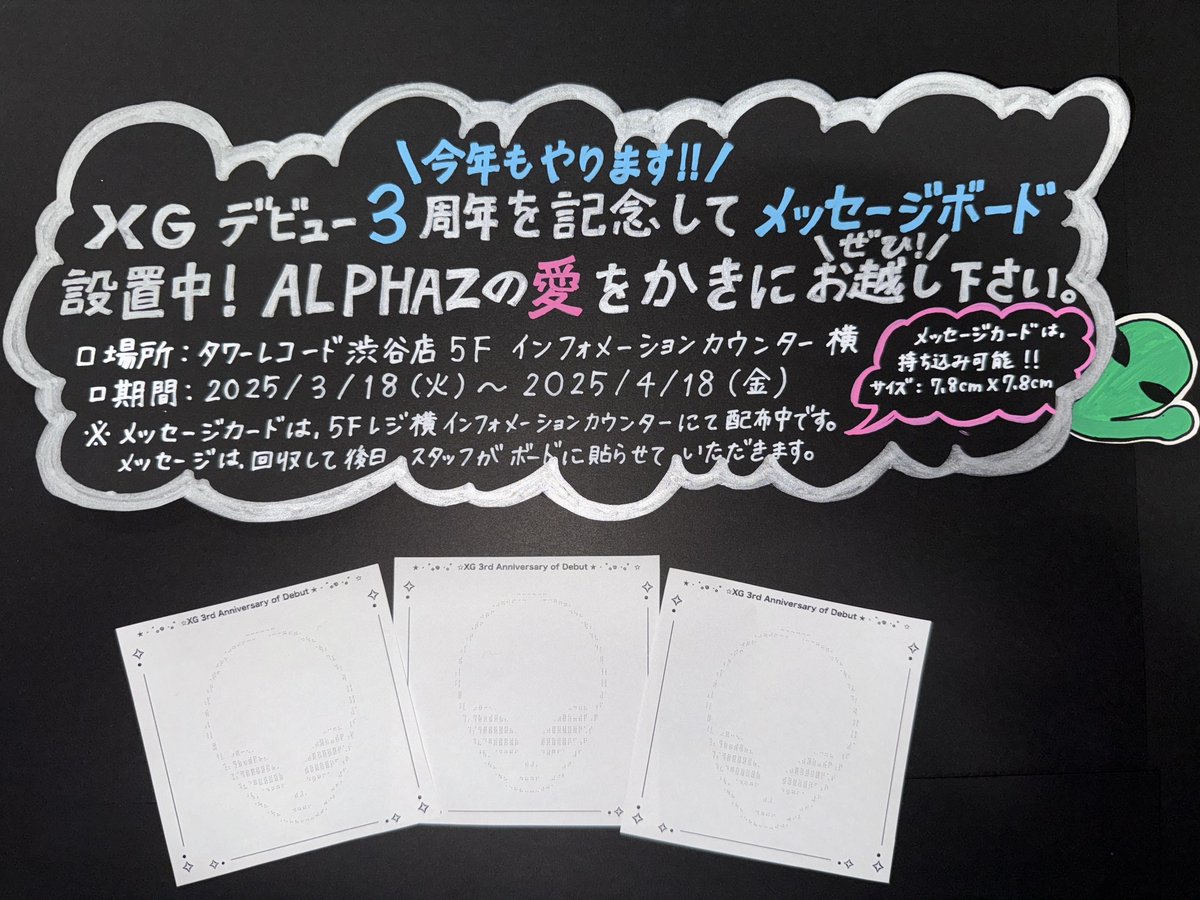 \今年もやります!!/
XG デビュー3周年を記念して メッセージボード
\ぜひ!/
設置中! ALPHAZの愛をかきにお越し下さい。
□場所:タワーレコード渋谷店 5F インフォメーションカウンター 横
□期間:2025/3/18(火)~2025/4/18(金)
※メッセージカードは、5Fレジ横インフォメーションカウンターにて配布中です。
メッセージは、回収して後日 スタッフがボードに貼らせていただきます。
メッセージカードは、
持ち込み可能!!
サイズ:7.8cm×7.8cm
☆XG 3rd Anniversary of Debut★
☆XG 3rd Anniversary of Debut★
☆XG 3rd Anniversary of Debut★